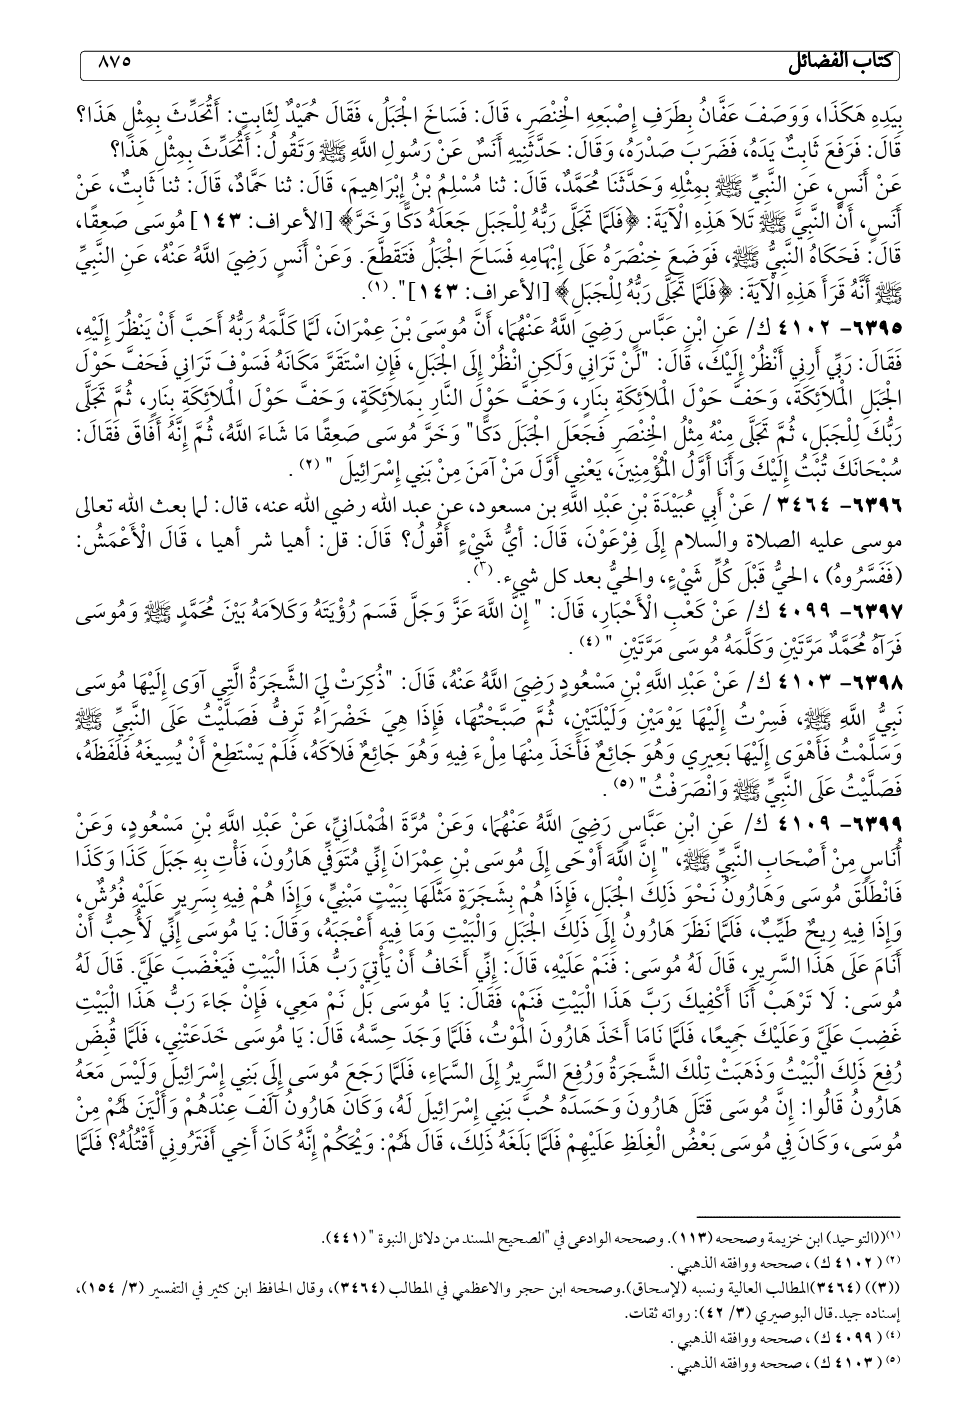 كتاب الفضائل ٨٧٥
بِيَدِهِ هَكَذَا، وَوَصَفَ عَفَّانُ بِطَرَفِ إِصْبَعِهِ الْخِنْصَرِ، قَالَ: فَسَاخَ الْجَبَلُ، فَقَالَ حُمَيْدٌ لِثَابِتٍ: أَتُحَدِّثُ بِمِثْلِ هَذَا؟
قَالَ: فَرَفَعَ ثَابِتٌ يَدَهُ، فَضَرَبَ صَدْرَهُ، وَقَالَ: حَدَّثَنِيهِ أَنَسٌ عَنْ رَسُولِ اللَّهِ ﷺ وَتَقُولُ: أَتُحَدِّثُ بِمِثْلِ هَذَا؟
عَنْ أَنَسٍ، عَنِ النَّبِيِّ ﷺ بِمِثْلِهِ وَحَدَّثَنَا مُحَمَّدٌ، قَالَ: ثنا مُسْلِمُ بْنُ إِبْرَاهِيمَ، قَالَ: ثنا حَمَّادٌ، قَالَ: ثنا ثَابِتٌ، عَنْ
أَنَسٍ، أَنَّ النَّبِيَّ ﷺ تَلَا هَذِهِ الْآيَةَ: ﴿فَلَمَّا تَجَلَّى رَبُّهُ لِلْجَبَلِ جَعَلَهُ دَكًّا وَخَرَّ﴾ [الأعراف: ١٤٣] مُوسَى صَعِقًا،
قَالَ: فَحَكَاهُ النَّبِيُّ ﷺ، فَوَضَعَ خِنْصَرَهُ عَلَى إِبْهَامِهِ فَسَاخَ الْجَبَلُ فَتَقَطَّعَ. وَعَنْ أَنَسٍ رَضِيَ اللَّهُ عَنْهُ، عَنِ النَّبِيِّ
ﷺ أَنَّهُ قَرَأَ هَذِهِ الْآيَةَ: ﴿فَلَمَّا تَجَلَّى رَبُّهُ لِلْجَبَلِ﴾ [الأعراف: ١٤٣]".(١).
٦٣٩٥- ٤١٠٢ ك/ عَنِ ابْنِ عَبَّاسٍ رَضِيَ اللَّهُ عَنْهُمَا، أَنَّ مُوسَى بْنَ عِمْرَانَ، لَمَّا كَلَّمَهُ رَبُّهُ أَحَبَّ أَنْ يَنْظُرَ إِلَيْهِ،
فَقَالَ: رَبِّي أَرِنِي أَنْظُرْ إِلَيْكَ، قَالَ: "لَنْ تَرَانِي وَلَكِنِ انْظُرْ إِلَى الْجَبَلِ، فَإِنِ اسْتَقَرَّ مَكَانَهُ فَسَوْفَ تَرَانِي فَحَفَّ حَوْلَ
الْجَبَلِ الْمَلَائِكَةَ، وَحَفَّ حَوْلَ الْمَلَائِكَةِ بِنَارٍ، وَحَفَّ حَوْلَ النَّارِ بِمَلَائِكَةٍ، وَحَفَّ حَوْلَ الْمَلَائِكَةِ بِنَارٍ، ثُمَّ تَجَلَّى
رَبُّكَ لِلْجَبَلِ، ثُمَّ تَجَلَّى مِنْهُ مِثْلُ الْخِنْصَرِ فَجَعَلَ الْجَبَلَ دَكًّا" وَخَرَّ مُوسَى صَعِقًا مَا شَاءَ اللَّهُ، ثُمَّ إِنَّهُ أَفَاقَ فَقَالَ:
سُبْحَانَكَ تُبْتُ إِلَيْكَ وَأَنَا أَوَّلُ الْمُؤْمِنِينَ، يَعْنِي أَوَّلَ مَنْ آمَنَ مِنْ بَنِي إِسْرَائِيلَ " (٢) .
٦٣٩٦- ٣٤٦٤ / عَنْ أَبِي عُبَيْدَةَ بْنِ عَبْدِ اللَّهِ بن مسعود، عن عبد الله رضي الله عنه، قال: لما بعث الله تعالى
موسى عليه الصلاة والسلام إِلَى فِرْعَوْنَ، قَالَ: أيُّ شَيْءٍ أَقُولُ؟ قَالَ: قل: أهيا شر أهيا ، قَالَ الْأَعْمَشُ:
(فَفَسَّرُوهُ) ، الحيُّ قَبْلَ كُلِّ شَيْءٍ، والحيُّ بعد كل شيء.(٣).
٦٣٩٧- ٤٠٩٩ ك/ عَنْ كَعْبِ الْأَحْبَارِ، قَالَ: " إِنَّ اللَّهَ عَزَّ وَجَلَّ قَسَمَ رُؤْيَتَهُ وَكَلَامَهُ بَيْنَ مُحَمَّدٍ ﷺ وَمُوسَى
فَرَآهُ مُحَمَّدٌ مَرَّتَيْنِ وَكَلَّمَهُ مُوسَى مَرَّتَيْنِ " (٤) .
٦٣٩٨- ٤١٠٣ ك/ عَنْ عَبْدِ اللَّهِ بْنِ مَسْعُودٍ رَضِيَ اللَّهُ عَنْهُ، قَالَ: "ذُكِرَتْ لِيَ الشَّجَرَةُ الَّتِي آوَى إِلَيْهَا مُوسَى
نَبِيُّ اللَّهِ ﷺ، فَسِرْتُ إِلَيْهَا يَوْمَيْنِ وَلَيْلَتَيْنِ، ثُمَّ صَبَّحْتُهَا، فَإِذَا هِيَ خَضْرَاءُ تَرِفُّ فَصَلَّيْتُ عَلَى النَّبِيِّ ﷺ
وَسَلَّمْتُ فَأَهْوَى إِلَيْهَا بَعِيرِي وَهُوَ جَائِعٌ فَأَخَذَ مِنْهَا مِلْءَ فِيهِ وَهُوَ جَائِعٌ فَلَاكَهُ، فَلَمْ يَسْتَطِعْ أَنْ يُسِيغَهُ فَلَفَظَهُ،
فَصَلَّيْتُ عَلَى النَّبِيِّ ﷺ وَانْصَرَفْتُ" (٥) .
٦٣٩٩- ٤١٠٩ ك/ عَنِ ابْنِ عَبَّاسٍ رَضِيَ اللَّهُ عَنْهُمَا، وَعَنْ مُرَّةَ الْهَمْدَانِيِّ، عَنْ عَبْدِ اللَّهِ بْنِ مَسْعُودٍ، وَعَنْ
أُنَاسٍ مِنْ أَصْحَابِ النَّبِيِّ ﷺ، " إِنَّ اللَّهَ أَوْحَى إِلَى مُوسَى بْنِ عِمْرَانَ إِنِّي مُتَوَفِّي هَارُونَ، فَأْتِ بِهِ جَبَلَ كَذَا وَكَذَا
فَانْطَلَقَ مُوسَى وَهَارُونُ نَحْوَ ذَلِكَ الْجَبَلِ، فَإِذَا هُمْ بِشَجَرَةٍ مَثَلُهَا بِبَيْتٍ مَبْنِيٍّ، وَإِذَا هُمْ فِيهِ بِسَرِيرٍ عَلَيْهِ فُرُشٌ،
وَإِذَا فِيهِ رِيحٌ طَيِّبٌ، فَلَمَّا نَظَرَ هَارُونُ إِلَى ذَلِكَ الْجَبَلِ وَالْبَيْتِ وَمَا فِيهِ أَعْجَبَهُ، وَقَالَ: يَا مُوسَى إِنِّي لَأُحِبُّ أَنْ
أَنَامَ عَلَى هَذَا السَّرِيرِ، قَالَ لَهُ مُوسَى: فَنَمْ عَلَيْهِ، قَالَ: إِنِّي أَخَافُ أَنْ يَأْتِيَ رَبُّ هَذَا الْبَيْتِ فَيَغْضَبَ عَلَيَّ. قَالَ لَهُ
مُوسَى: لَا تَرْهَبْ أَنَا أَكْفِيكَ رَبَّ هَذَا الْبَيْتِ فَنَمْ، فَقَالَ: يَا مُوسَى بَلْ نَمْ مَعِي، فَإِنْ جَاءَ رَبُّ هَذَا الْبَيْتِ
غَضِبَ عَلَيَّ وَعَلَيْكَ جَمِيعًا، فَلَمَّا نَامَا أَخَذَ هَارُونَ الْمَوْتُ، فَلَمَّا وَجَدَ حِسَّهُ، قَالَ: يَا مُوسَى خَدَعَتْنِي، فَلَمَّا قُبِضَ
رُفِعَ ذَلِكَ الْبَيْتُ وَذَهَبَتْ تِلْكَ الشَّجَرَةُ وَرُفِعَ السَّرِيرُ إِلَى السَّمَاءِ، فَلَمَّا رَجَعَ مُوسَى إِلَى بَنِي إِسْرَائِيلَ وَلَيْسَ مَعَهُ
هَارُونُ قَالُوا: إِنَّ مُوسَى قَتَلَ هَارُونَ وَحَسَدَهُ حُبَّ بَنِي إِسْرَائِيلَ لَهُ، وَكَانَ هَارُونُ آلَفَ عِنْدَهُمْ وَأَلْيَنَ لَهُمْ مِنْ
مُوسَى، وَكَانَ فِي مُوسَى بَعْضُ الْغِلَظِ عَلَيْهِمْ فَلَمَّا بَلَغَهُ ذَلِكَ، قَالَ لَهُمْ: وَيْحَكُمْ إِنَّهُ كَانَ أَخِي أَفَتَرُونِي أَقْتُلُهُ؟ فَلَمَّا
(١)((التوحيد) ابن خزيمة وصححه (١١٣). وصححه الوادعى في "الصحيح المسند من دلائل النبوة " (٤٤١).
(٢) ( ٤١٠٢ ك) ، صححه ووافقه الذهبي .
((٣)) (٣٤٦٤)المطالب العالية ونسبه (لإسحاق).وصححه ابن حجر والاعظمي في المطالب (٣٤٦٤)، وقال الحافظ ابن كثير في التفسير (٣/ ١٥٤)،
إسناده جيد.قال البوصيري (٣/ ٤٢): رواته ثقات.
(٤) ( ٤٠٩٩ ك) ، صححه ووافقه الذهبي .
(٥) ( ٤١٠٣ ك) ، صححه ووافقه الذهبي .